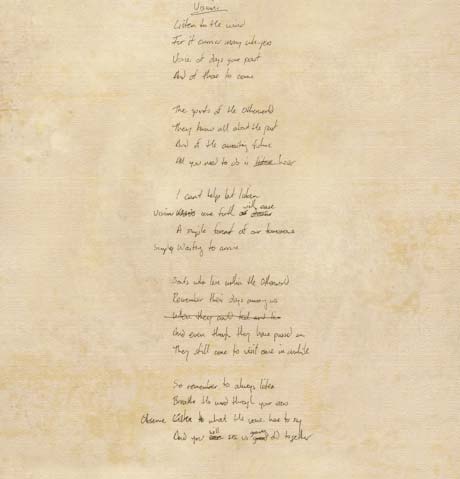 Visions
Listen to the wind
For it carries many whispers
Voices of days gone past
And of those to come
The spirits of the Otherworld
They know all about the past
And of the awaiting future
All you need to do is listen hear
I can't help but listen
Visions come forth with ease
A simple format of our tomorrows
Simply Waiting to arrive
Souls who live within the Otherworld
Remember their days among us
when they could feel and
And even though they have passed on
They still come to visit once in awhile
So remember to always listen
Breathe the wind through your ears
Observe Listen to what the voices have to say
And you will see us growing old together